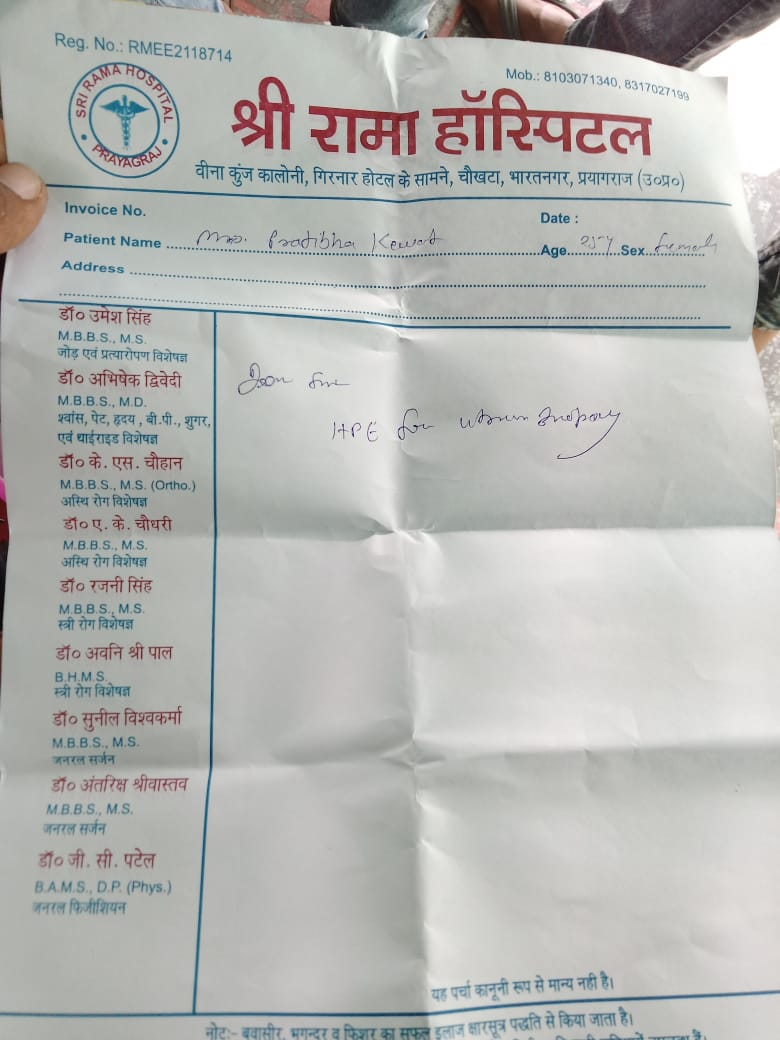 Reg. No.: RMEE2118714
Mob.: 8103071340, 8317027199
SRI RAMA HOSPITAL
PRAYAGRAJ
श्री रामा हॉस्पिटल
वीना कुंज कालोनी, गिरनार होटल के सामने, चौखटा, भारतनगर, प्रयागराज (उ०प्र०)
Invoice No.
Date :
Patient Name Mrs. Pratibha Kewat Age 25y Sex Female
Address
डॉ० उमेश सिंह
M.B.B.S., M.S.
जोड़ एवं प्रत्यारोपण विशेषज्ञ
डॉ० अभिषेक द्विवेदी
M.B.B.S., M.D.
श्वांस, पेट, हृदय, बी.पी., शुगर,
एवं थाईराइड विशेषज्ञ
डॉ० के. एस. चौहान
M.B.B.S., M.S. (Ortho.)
अस्थि रोग विशेषज्ञ
डॉ० ए. के. चौधरी
M.B.B.S., M.S.
अस्थि रोग विशेषज्ञ
डॉ० रजनी सिंह
M.B.B.S., M.S.
स्त्री रोग विशेषज्ञ
डॉ० अवनि श्री पाल
B.H.M.S.
स्त्री रोग विशेषज्ञ
डॉ० सुनील विश्वकर्मा
M.B.B.S., M.S.
जनरल सर्जन
डॉ० अंतरिक्ष श्रीवास्तव
M.B.B.S., M.S.
जनरल सर्जन
डॉ० जी. सी. पटेल
B.A.M.S., D.P. (Phys.)
जनरल फिजीशियन
HPE for
यह पर्चा कानूनी रूप से मान्य नही है।
नोट:- बवासीर, भगन्दर व फिशर का सफल इलाज क्षारसूत्र पद्धति से किया जाता है।